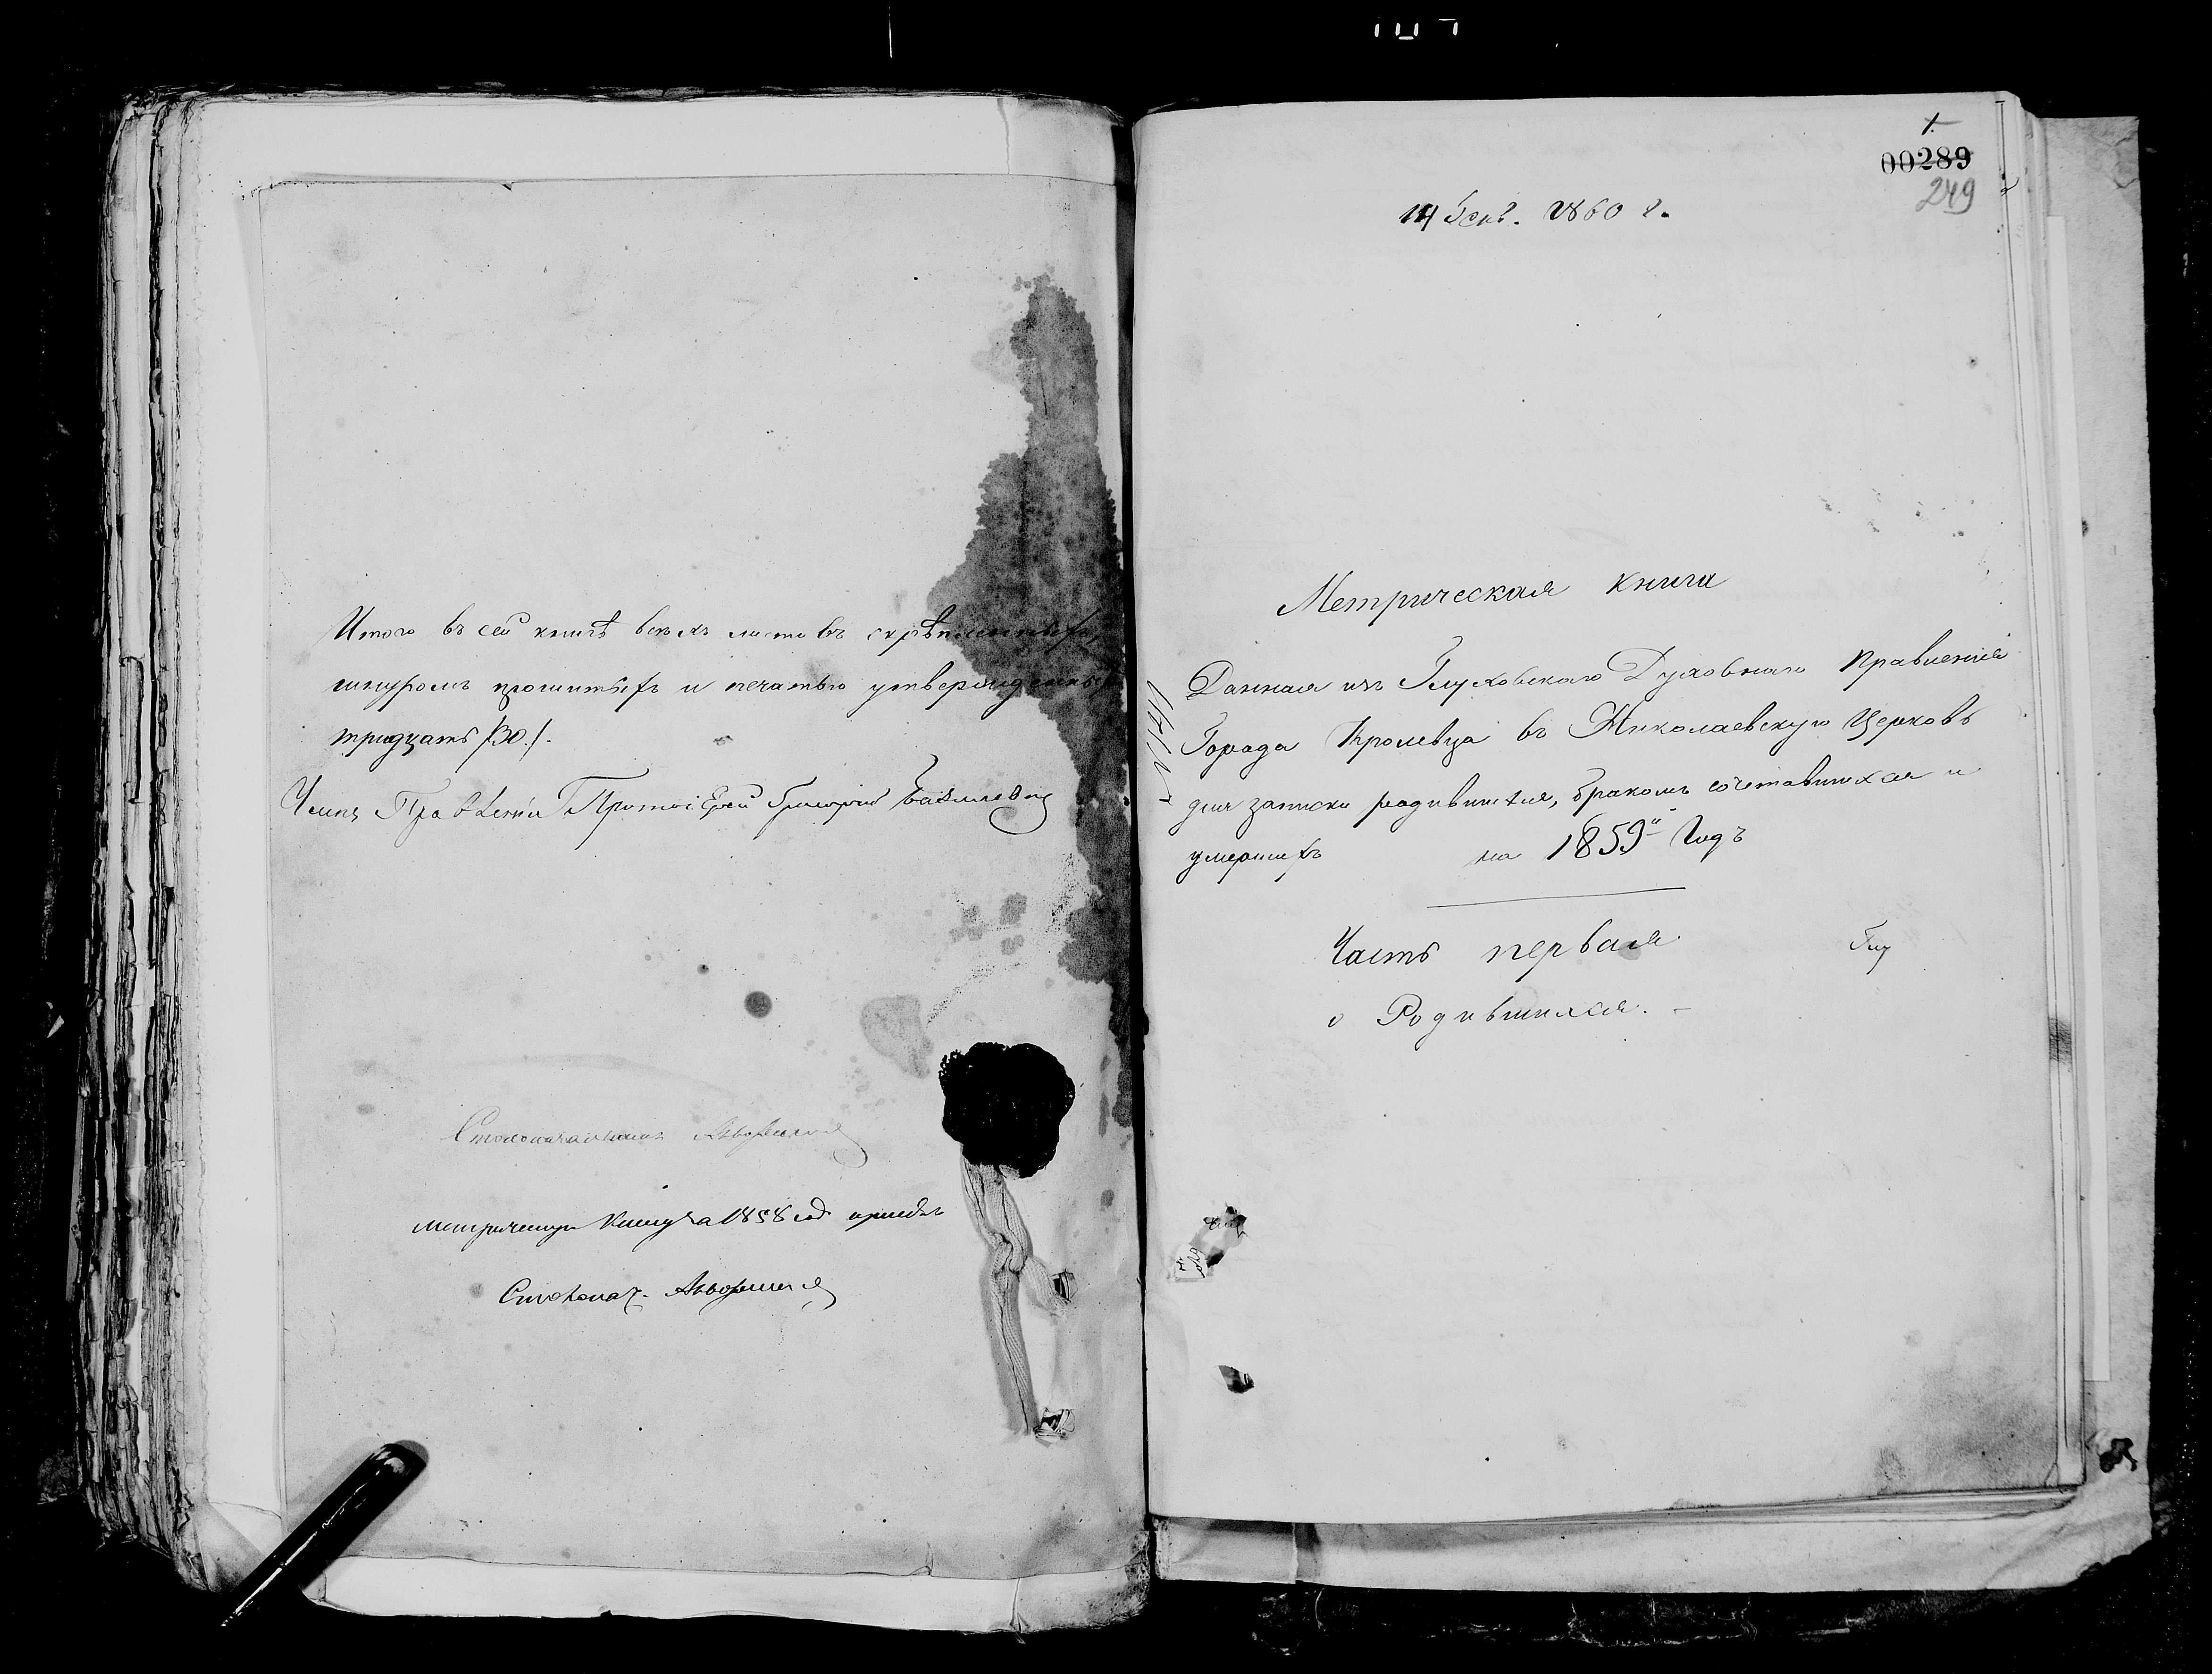 Итого въ сей книгѣ всѣхъ листовъ скрѣпленныхъ,
шнуромъ прошитыхъ и печатью утвержденныхъ
тридцать /30./.
Членъ Правленія Протоіерей Григорій
Столоначальникъ
метрическую книгу за 1858 год
Столонач.
1.
00289
249
14 Генв. 1860 г.
Метрическая книга
Данная изъ Глуховскаго Духовнаго Правленія
Города Кролевца въ Николаевскую Церковь
для записки родившихся, бракомъ сочетавшихся и
умершихъ на 1859й Годъ
Часть первая
Глу
о Родившихся. —